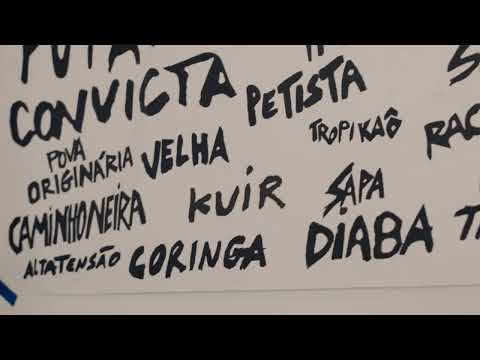 PUTA
CONVICTA
PETISTA
TROPIKAÔ
POVA
ORIGINÁRIA
VELHA
CAMINHONEIRA
KUÍR
SAPA
ALTATENSÃO
CORINGA
DIABA